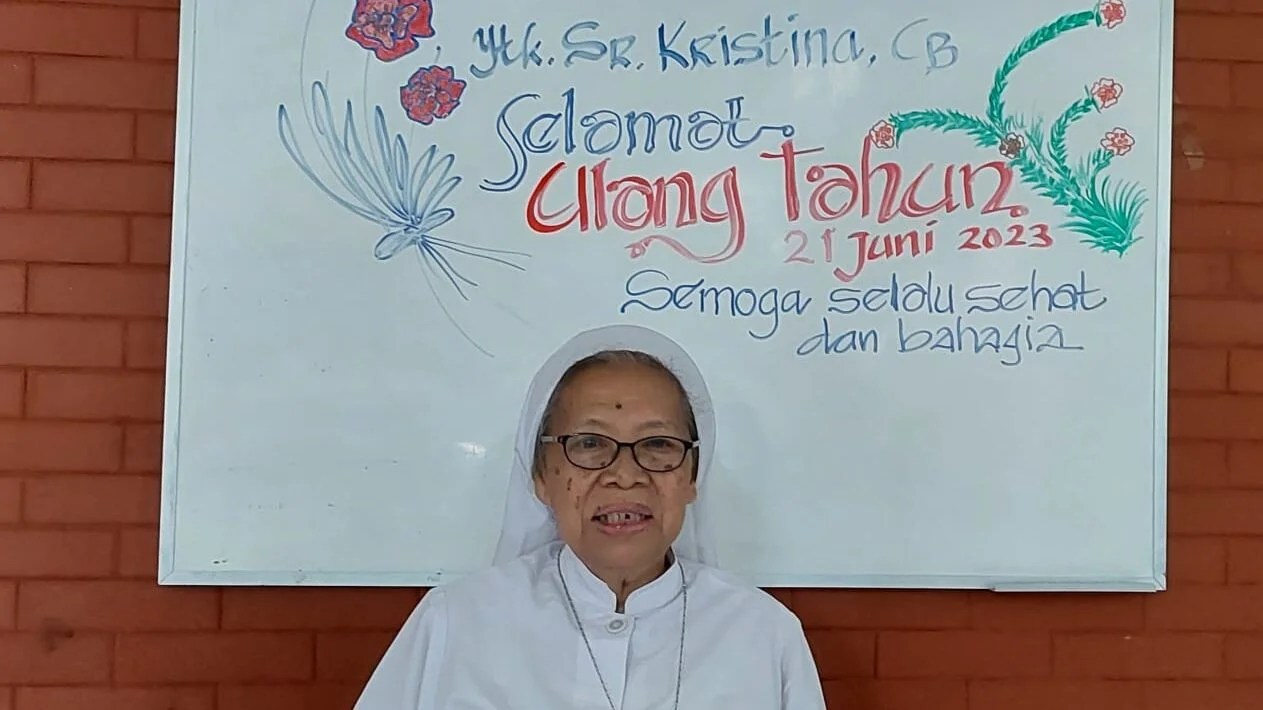 Ytk. Sr. Kristina, CB
Selamat
Ulang Tahun
21 Juni 2023
Semoga selalu sehat
dan bahagia